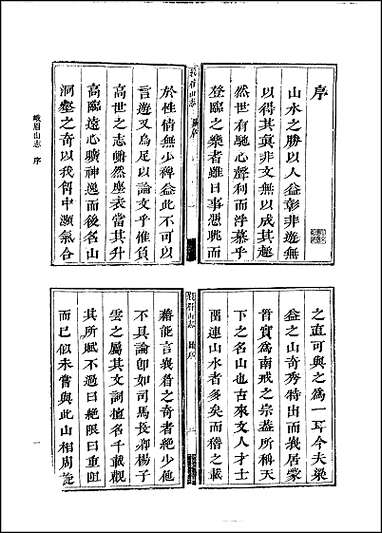 序
山水之勝以人益彰非遊無
以得其眞非文無以成其趣
然世有馳心聲利而浮慕乎
登臨之樂者雖日事憑眺而
峩眉山志 序
於性情無少裨益此不可以
言遊又烏足以論文乎惟負
高世之志 然 表當其升
高臨遠心曠神逸而後名山
洞壑之奇以我胷中灝氣合
之直可與之爲一耳今夫梁
益之山奇秀特出而峩居蒙
晉實爲南戒之宗蓋所稱天
下之名山也古來文人才士
連山水者多矣而稽之載
峩眉山志 序
藉能言峩眉之奇者絕少他
不具論卽如司馬長卿楊子
雲之屬其文詞擅名千載觀
其所賦不過曰絕限曰重阻
而已似未嘗與此山相周旋
峨眉山志 序
一